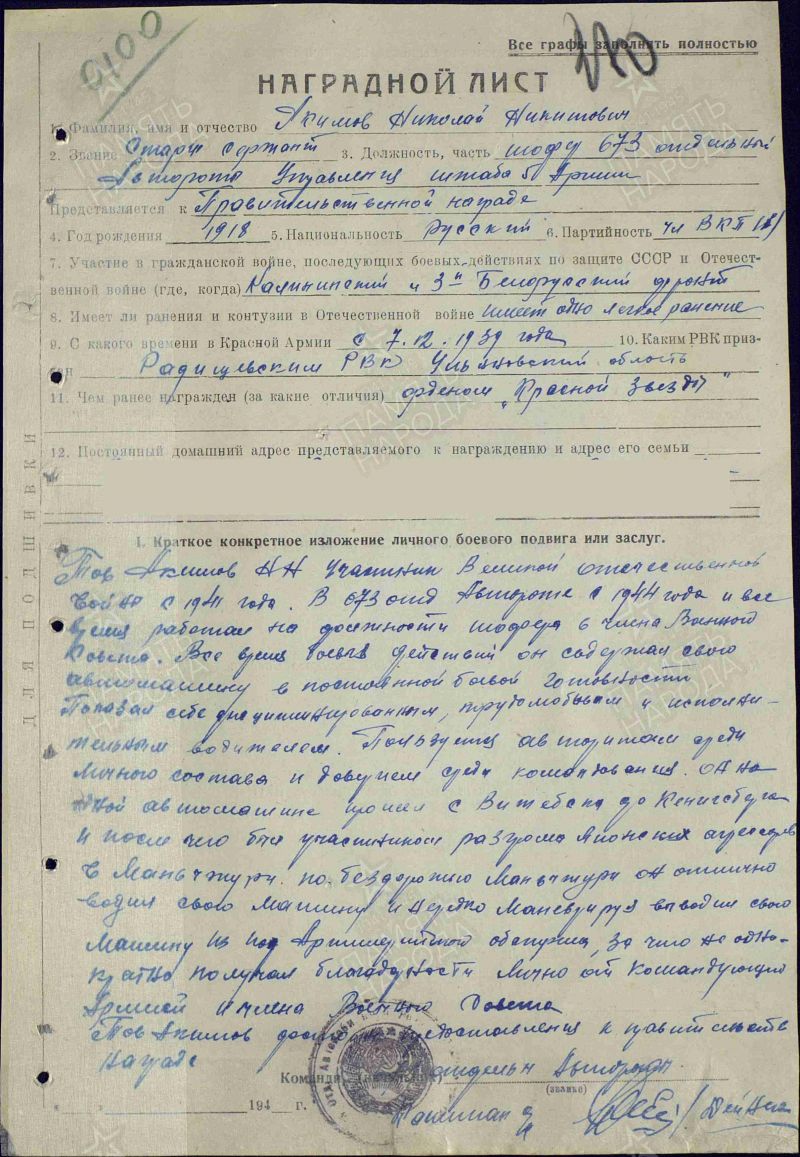 0100
220
Все графы заполнять полностью
НАГРАДНОЙ ЛИСТ
1. Фамилия, имя и отчество Якимов Николай Никитович
2. Звание Старш сержант 3. Должность, часть шофер 673 отдельный
Автороты Управления штаба 5 Армии
Представляется к Правительственной награде
4. Год рождения 1918 5. Национальность Русский 6. Партийность чл ВКП(б)
7. Участие в гражданской войне, последующих боевых действиях по защите СССР и Отечест-
венной войне (где, когда) Калининский и 3й Белорусский фронт
8. Имеет ли ранения и контузии в Отечественной войне имеет одно легкое ранение
9. С какого времени в Красной Армии с 7.12.1939 года 10. Каким РВК приз-
ван Радищевским РВК Ульяновский область
11. Чем ранее награжден (за какие отличия) орденом „Красной Звезды"
12. Постоянный домашний адрес представляемого к награждению и адрес его семьи
1. Краткое конкретное изложение личного боевого подвига или заслуг.
Тов Якимов НН участник Великой отечественной
войны с 1941 года. В 673 отд Автороте с 1944 года и все
время работал на должности шофера в члена Военного
Совета. Все время боевых действий он содержал свою
автомашину в постоянной боевой готовности
Показал себя дисциплинированным, трудолюбивым и исполни-
тельным водителем. Пользуется авторитетом среди
личного состава и доверием среди командования. он на
одной автомашине прошел с Витебска до Кенигсберга
и после чего был участником разгрома японских агрессоров
в Маньчжури. по бездорожью Маньчжури он отлично
водил свою машину и нередко маневрируя выводил свою
машину из под Артиллерийского обстрела, за что не одно-
кратно получал благодарности лично от командующий
Армией и члена Военного Совета
Тов Якимов достоин представления к правительств
награде
Командир (начальник)
(звание)
194 г.
Капитан
ДЛЯ ПОДШИВКИ
ПАМЯТЬ НАРОДА